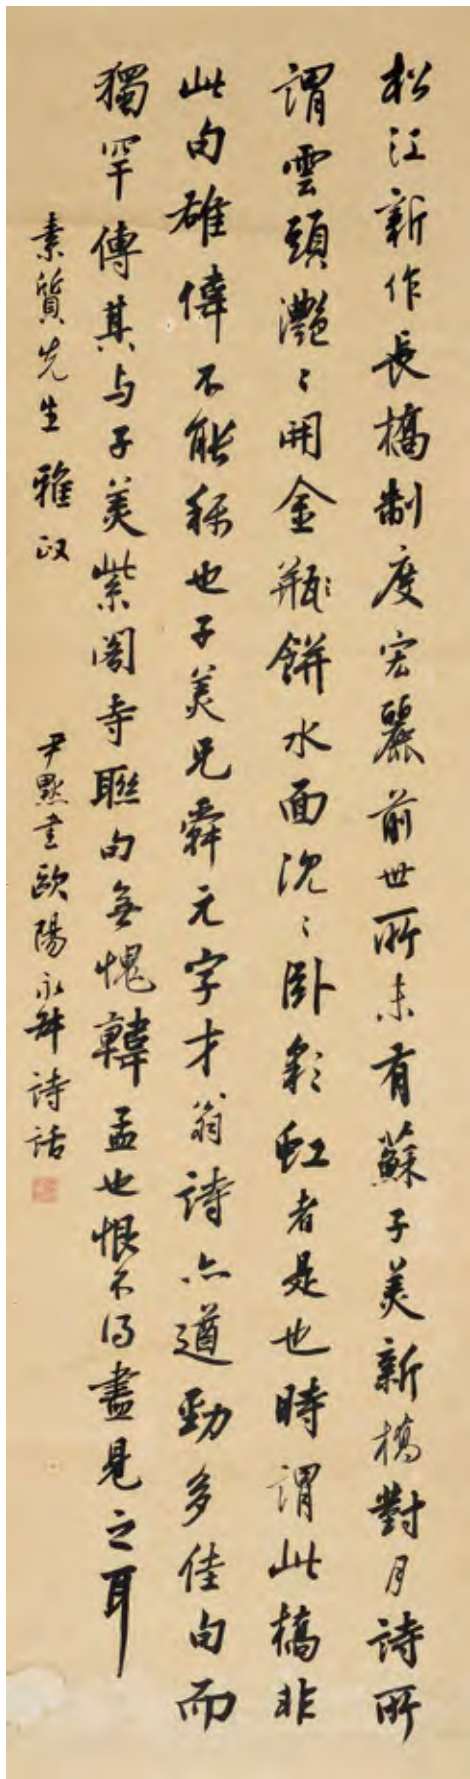 松江新作長橋制度宏麗前世所未有蘇子美新橋對月詩所
謂雲頭灧〻開金瓶餅水面沈〻卧彩虹者是也時謂此橋非
此句雄偉不能稱也子美兄舜元字才翁詩亦遒勁多佳句而
獨罕傳其与子美紫閣寺聯句無愧韓孟也恨不得盡見之耳
素質先生雅政
尹默書歐陽永叔詩話